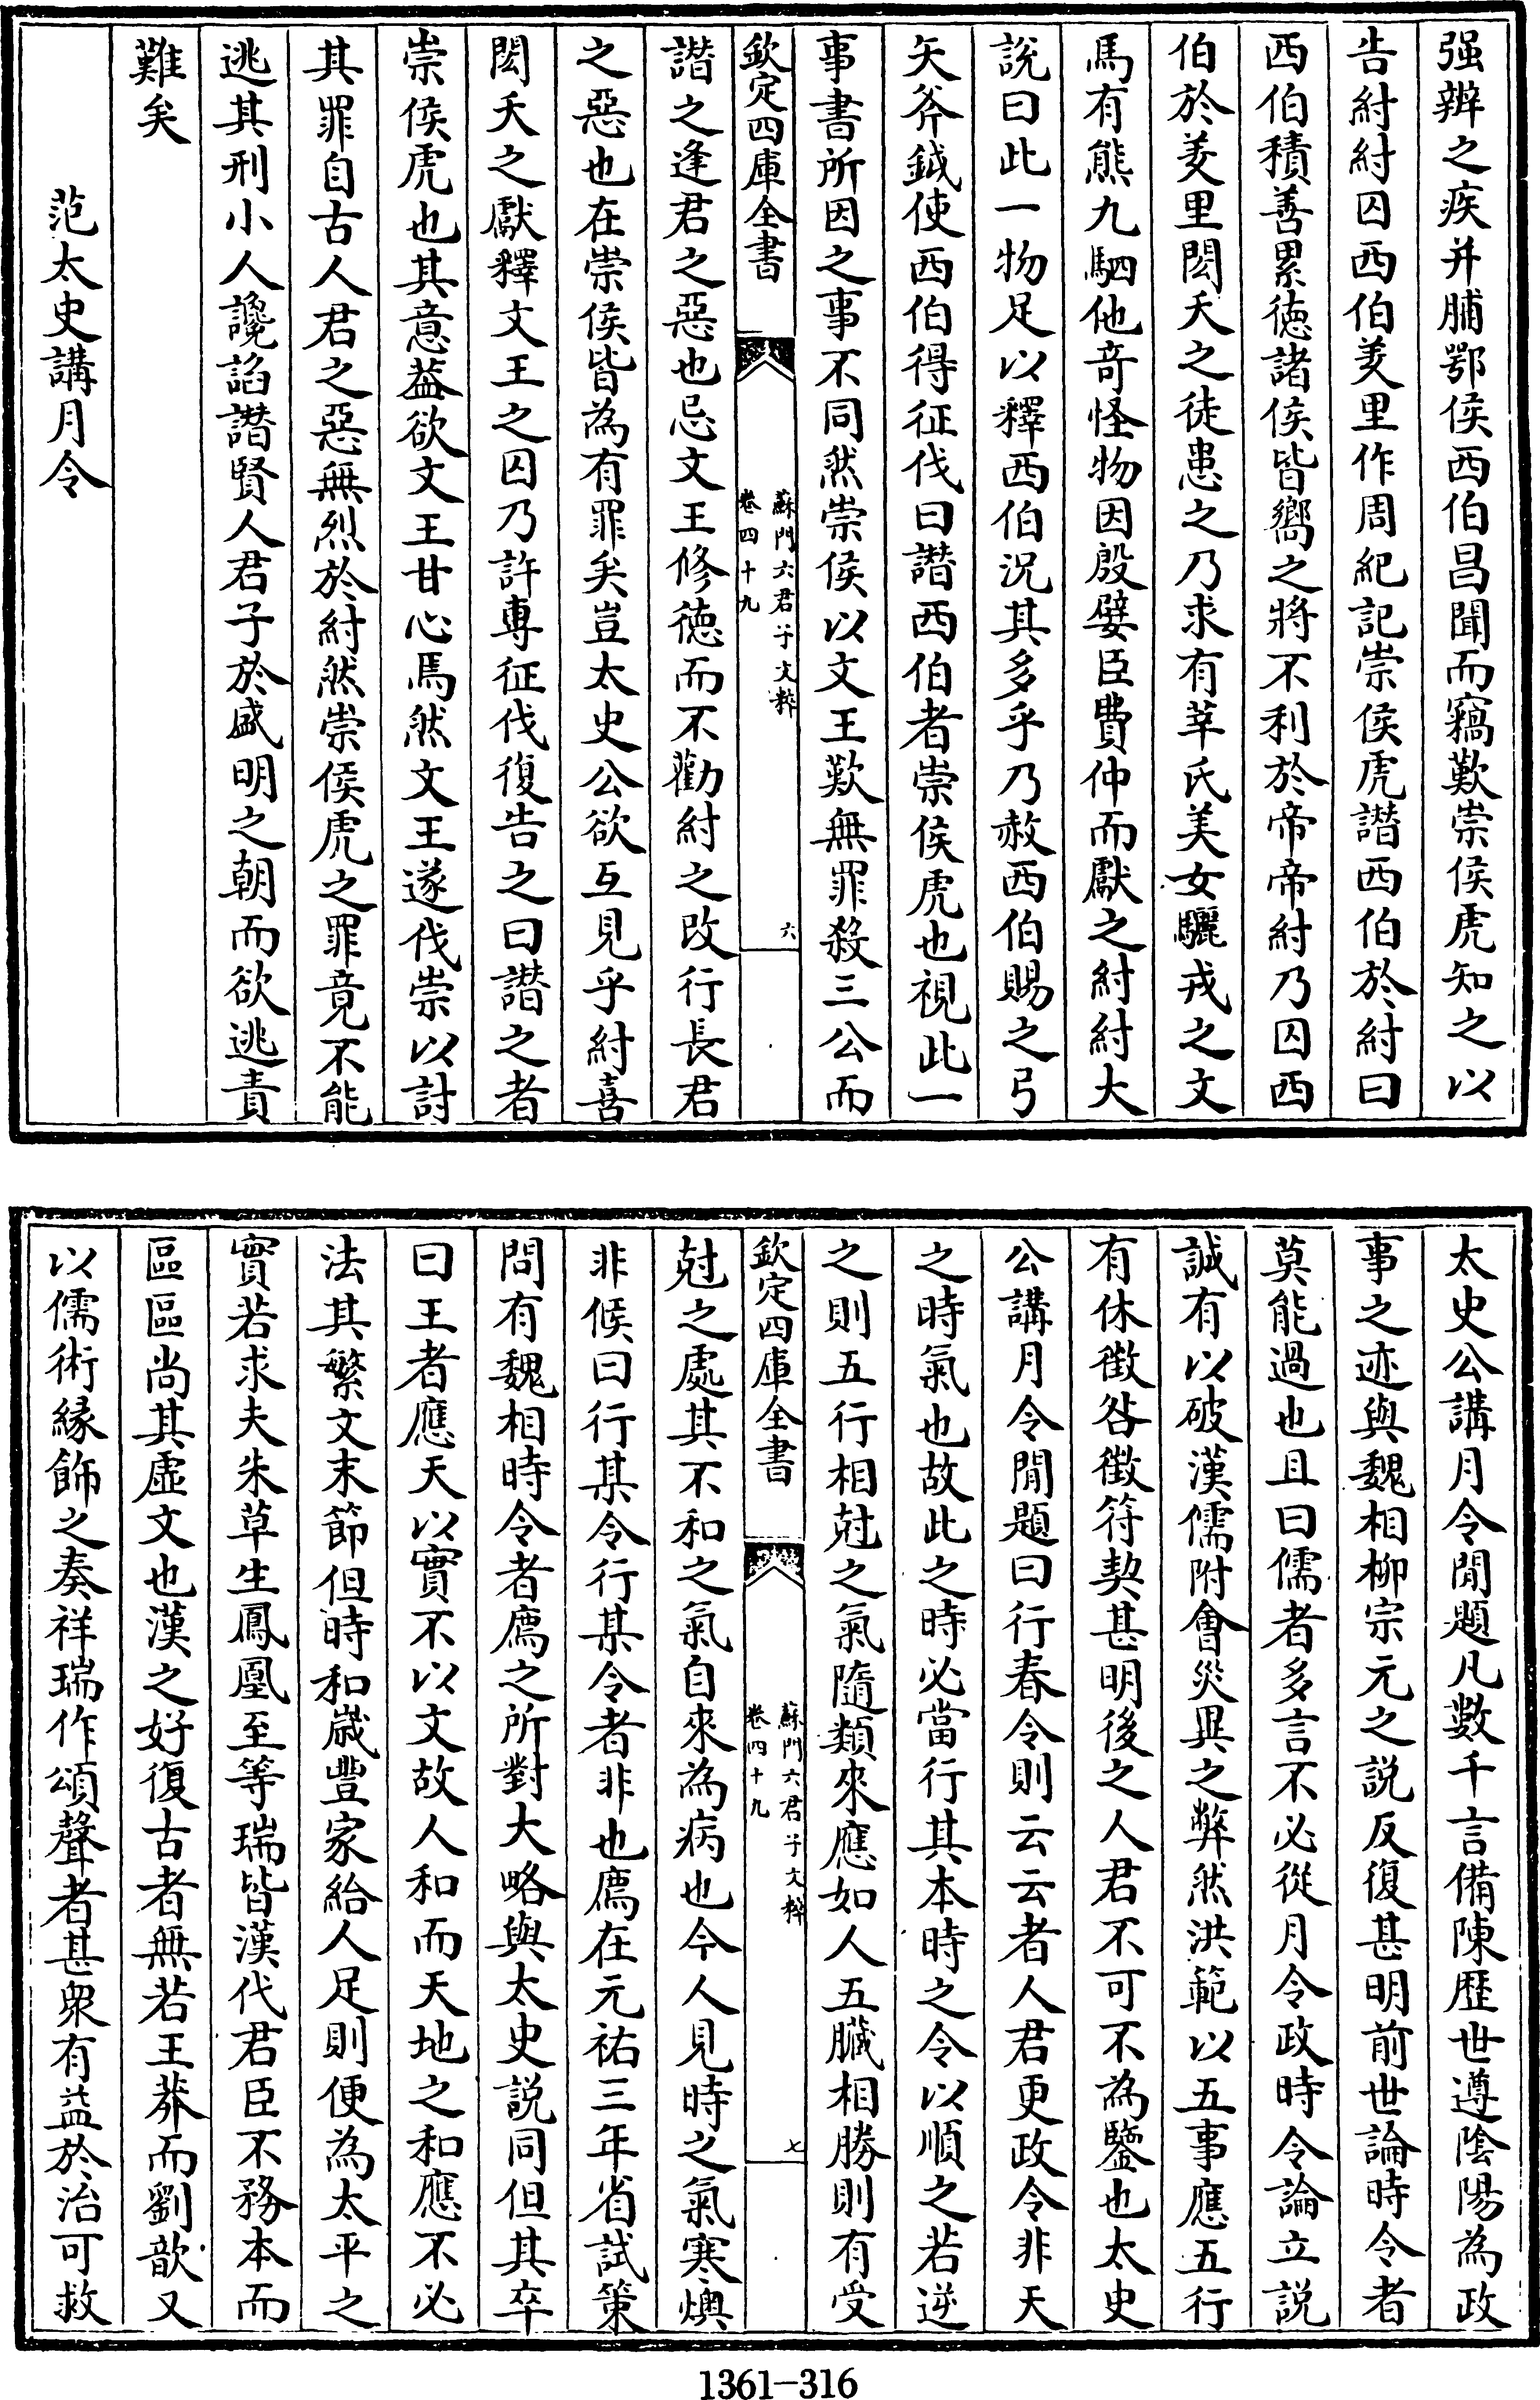 强辨之疾并脯鄂侯西伯昌聞而竊歎崇侯虎知之以
告紂紂囚西伯羑里作周紀記崇侯虎譖西伯於紂曰
西伯積善累德諸侯皆嚮之將不利於帝帝紂乃囚西
伯於羑里閎夭之徒患之乃求有莘氏美女驪戎之文
馬有熊九駟他奇怪物因殷嬖臣費仲而獻之紂紂大
説曰此一物足以釋西伯況其多乎乃赦西伯賜之弓
矢斧鉞使西伯得征伐曰譖西伯者崇侯虎也視此一
事書所因之事不同然崇侯以文王歎無罪殺三公而
欽定四庫全書
蘇門六君子文粹
卷四十九
六
譖之逢君之惡也忌文王修德而不勸紂之改行長君
之惡也在崇侯皆為有罪矣豈太史公欲互見乎紂喜
閎夭之獻釋文王之囚乃許專征伐復告之曰譖之者
崇侯虎也其意葢欲文王甘心焉然文王遂伐崇以討
其罪自古人君之惡無烈於紂然崇侯虎之罪竟不能
逃其刑小人讒諂譖賢人君子於盛明之朝而欲逃責
難矣
范太史講月令
太史公講月令閒題凡數千言備陳歴世遵隂陽為政
事之迹與魏相柳宗元之説反復甚明前世論時令者
莫能過也且曰儒者多言不必從月令政時令論立説
誠有以破漢儒附會災異之弊然洪範以五事應五行
有休徵咎徵符契甚明後之人君不可不為鑒也太史
公講月令閒題曰行春令則云云者人君更政令非天
之時氣也故此之時必當行其本時之令以順之若逆
之則五行相尅之氣隨類來應如人五臟相勝則有受
欽定四庫全書
蘇門六君子文粹
卷四十九
七
尅之處其不和之氣自來為病也今人見時之氣寒燠
非候曰行某令行某令者非也廌在元祐三年省試策
問有魏相時令者廌之所對大略與太史説同但其卒
曰王者應天以實不以文故人和而天地之和應不必
法其繁文末節但時和歲豐家給人足則便為太平之
實若求夫朱草生鳳凰至等瑞皆漢代君臣不務本而
區區尚其虛文也漢之好復古者無若王莽而劉歆又
以儒術緣飾之奏祥瑞作頌聲者甚衆有益於治可救
1361-316